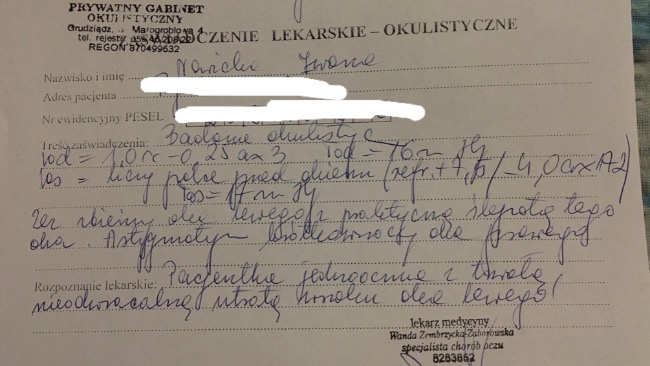 PRYWATNY GABINET
OKULISTYCZNY
Grudziądz, Małogroblowa 4
tel. rejestr.
REGON 870499632
LEKARSKIE - OKULISTYCZNE
Nazwisko i imię Iwona
Adres pacjenta
Nr ewidencyjny PESEL
Treść zaświadczenia: Badanie okulistyc
Vod = 1,0 x -0,25 ax 3 Tod = 16 m Hg
Vos = liczy palce przed okiem (refr. + 7, / -4,0 cx
Tos = 17 m Hg
Zez oka lewego z praktyczną ślepotą tego
oka. Astygmatyzm oka prawego
Rozpoznanie lekarskie: Pacjentka jednooczna z trwałą
nieodwracalną utratą wzroku oka lewego!
lekarz medycyny
Wanda Zembrzycka-Zaborowska
specjalista chorób oczu
8283852